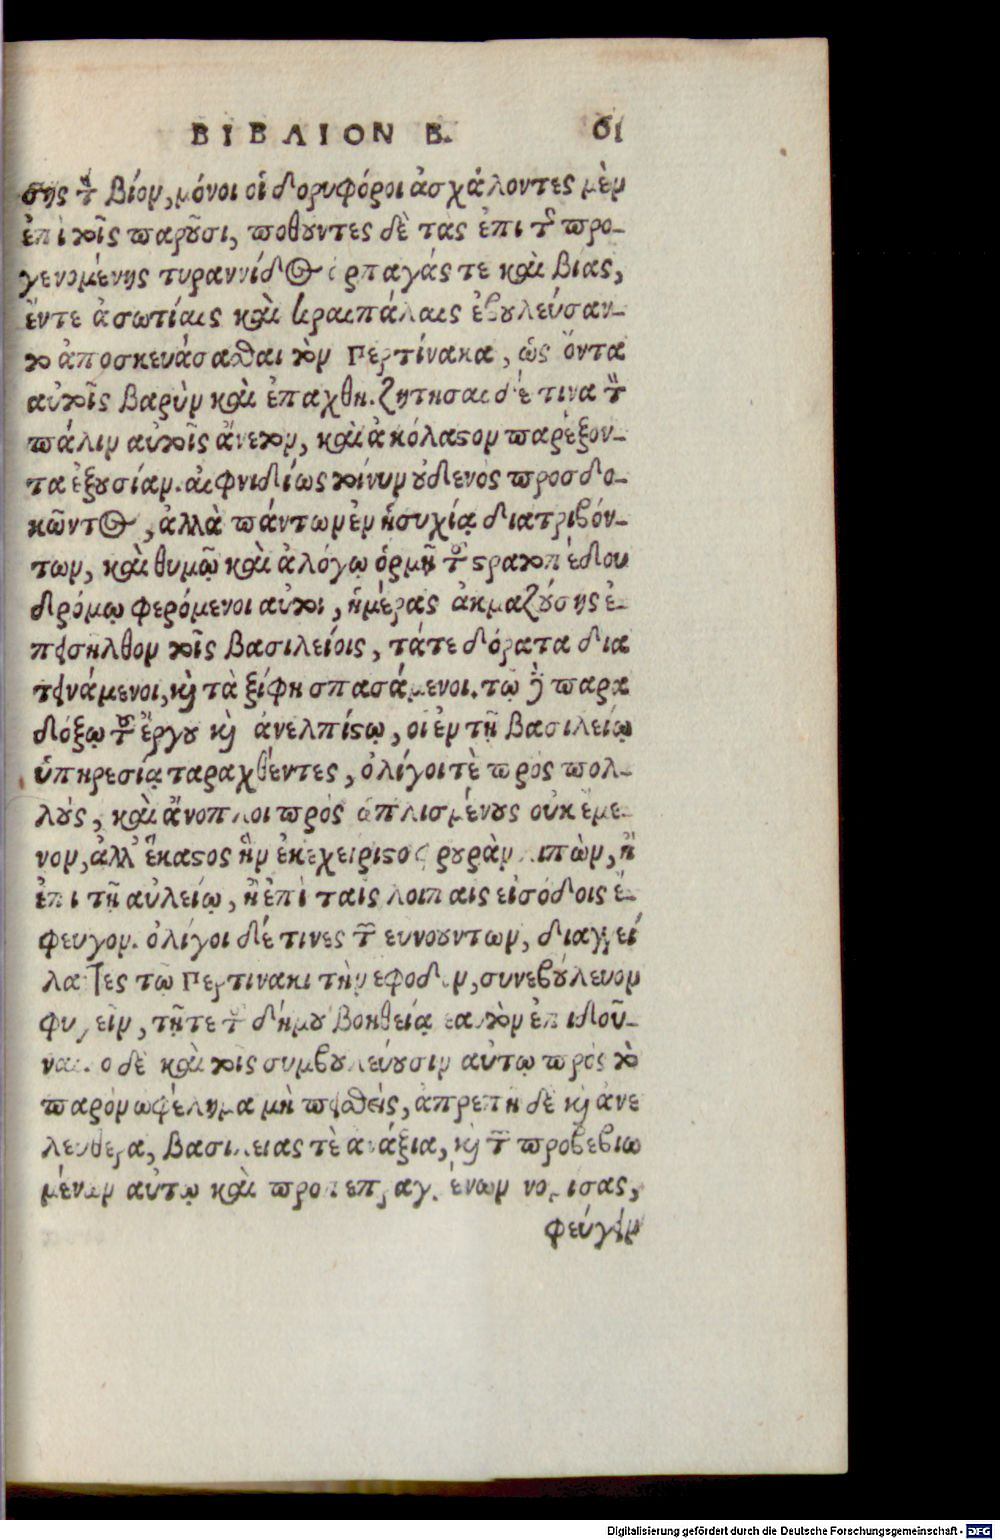 ΒΙΒΛΙΟΝ Β. 61
σης τὸν βίον, μόνοι οἱ δορυφόροι ἀσχάλοντες μὲν
ἐπὶ τοῖς παροῦσι, ποθοῦντες δὲ τὰς ἐπι τῆς προ-
γενομένης τυραννίδος ἁρπαγάς τε καὶ βιας,
ἔντε ἀσωτίαις καὶ κραιπάλαις ἐβουλεύσαν-
το ἀποσκευάσασθαι τὸν Περτίνακα, ὡς ὄντα
αὐτοῖς βαρὺν καὶ ἐπαχθη. ζητησαι δέ τινα τὸν
πάλιν αὐτοῖς ἄνετον, καὶ ἀκόλαστον παρέξον-
τα ἐξουσίαν. αἰφνιδίως τοίνυν οὐδενὸς προσδο-
κῶντος, ἀλλὰ πάντων ἐν ἡσυχίᾳ διατριβόν-
των, καὶ θυμῷ καὶ ἀλόγῳ ὁρμῇ τοῦ στρατοπέδου
δρόμῳ φερόμενοι αὐτοι, ἡμέρας ἀκμαζούσης ἐ-
πεισῆλθον τοῖς βασιλείοις, τάτε δόρατα δια
τεινάμενοι, καὶ τὰ ξίφη σπασάμενοι. τῷ δὲ παρα
δόξῳ τοῦ ἔργου καὶ ἀνελπίστῳ, οἱ ἐν τῇ βασιλείῳ
ὑπηρεσίᾳ ταραχθέντες, ὀλίγοι τὲ πρὸς πολ-
λούς, καὶ ἄνοπλοι πρὸς ὁπλισμένους οὐκ ἔμε-
νον, ἀλλ' ἕκαστος ἣν ἐκεχειριστο φρουρὰν λιπὼν, ἢ
ἐπι τῇ αὐλείῳ, ἢ ἐπὶ ταὶς λοιπαις εἰσόδοις ἔ-
φευγον. ὀλίγοι δέ τινες τῶν ευνουντων, διαγγεί
λαντες τῶ Περτινακι τὴν εφοδον, συνεβούλευον
φυγεῖν, τῇτε τοῦ δήμου βοηθείᾳ εαυτὸν ἐπιδοῦ-
ναι. ο δὲ καὶ τοὶς συμβουλεύουσιν αὐτῳ πρὸς τὸ
παρὸν ωφέλημα μὴ πεισθεὶς, ἀπρεπῆ δὲ καὶ ἀνε
λευθερα, βασιλειας τὲ ανάξια, καὶ τῶν προβεβιω
μένων αὐτῳ καὶ προπεπραγμένων νομισας,
φεύγειν
Digitalisierung gefördert durch die Deutsche Forschungsgemeinschaft - DFG